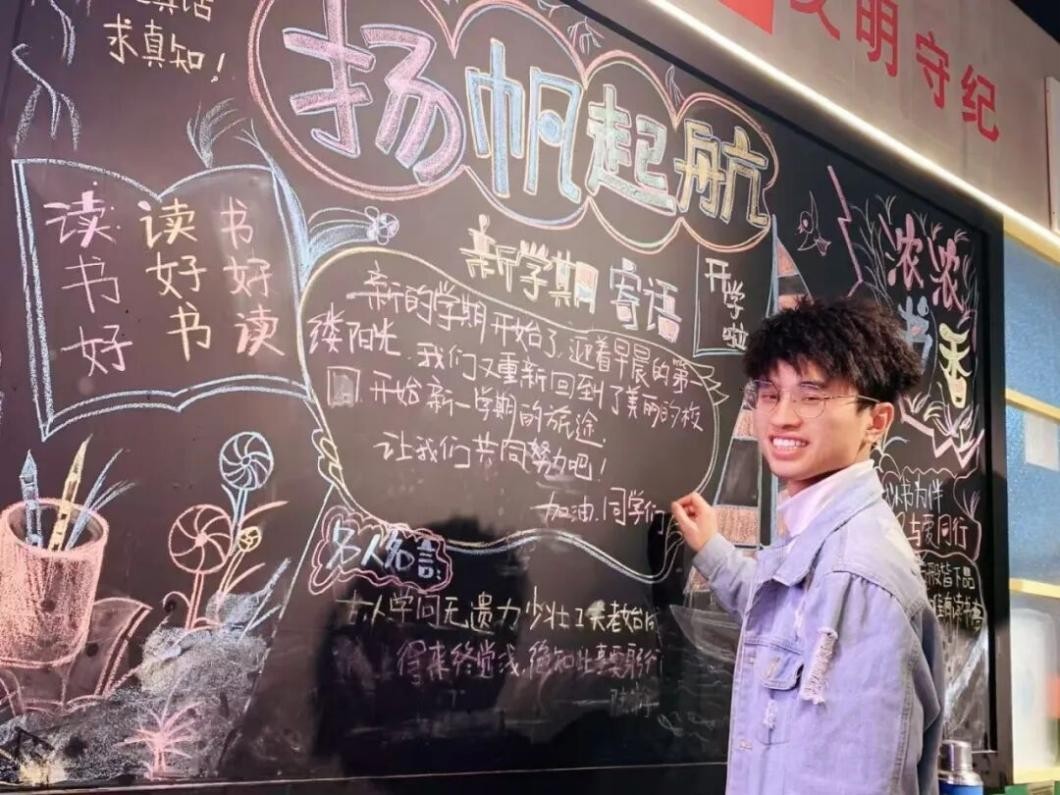 求真知！
扬帆起航
文明守纪
读书好
读好书
书好读
新学期寄语
新的学期开始了，迎着早晨的第一
缕阳光，我们又重新回到了美丽的校
园，开始新一学期的旅途。
让我们共同努力吧！
加油，同学们
开学啦
浓浓书香
名人名言：
古人学问无遗力，少壮工夫老始
得来终觉浅，绝知此事要躬行
以书为伴
与爱同行
皆下品
读书高